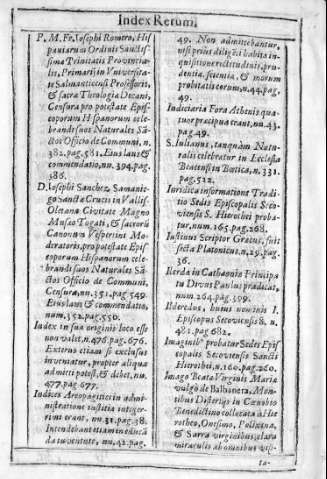 Index Rerum.
P. M. Fr. Iosephi Romero, His
paniarum Ordinis Sanctis-
simæ Trinitatis Provincia-
lis, Primarij in Vniversita-
te Salmanticensi Professoris,
& sacra Theologia Decani,
Censura pro potestate Epis-
coporum Hispanorum cele-
brandi suos Naturales Sā-
ctos Officio de Communi, n.
382. pag. 581. Eius laus &
commendatio, nu. 394. pag.
586.
D. Iosephi Sanchez Samanie-
go Sancta Crucis in Vallis-
Oletana Civitate Magno
Musao Togati, & sacrorū
Canonum Vespertini Mo-
deratoris, pro potestate Epis-
coporum Hispanorum cele-
brandi suos Naturales Sā-
ctos Officio de Communi,
Censura, nu. 351. pag. 549.
Eius laus & commendatio,
num. 352. pag. 550.
Index in sua originis loco esse
non valet, n. 476. pag. 676.
Externo etiam si exclusus
invenatur, propter aliqua
admitti potest, & debet, nu.
477. pag. 677.
Iudices Areopagitici in admi-
nistratione iustitia integer-
rimi erant, nu. 31. pag. 38.
Intendebant etiam in educā
da iuventute, nu. 42. pag.
49. Non admittebantur,
nisi prius diligēti habita in-
quisitione rectitudinis, pru-
dentia, scientia, & morum
probitatis eorum, n. 44. pag.
49.
Iudiciaria Fora Athenis qua-
tuor præcipua erant, nu. 43.
pag. 49.
S. Iulianus, tanquàm Natu-
ralis celebratur in Ecclesia
Beatiensi in Boetica, n. 331.
pag. 522.
Iuridica informatione Tradi-
tio Sedis Episcopalis Seco-
viensis S. Hierothei proba-
tur, num. 165. pag. 268.
Iustinus Scriptor Gracus, fuit
secta Platonicus. n. 29. pag.
36.
Ilerda in Cathaonia Principa
tu Divus Paulus pradicat,
num. 264. pag. 399.
Ilderedus, huius nominis I.
Episcopus Secoviensis 8. n.
481. pag. 682.
Imaginib' probatur Sedes Epis
copalis Secoviensis Sancti
Hierothei, n. 160. pag. 260.
Imago Beata Virginis Maria
vulgò de Balbonera, Mon-
tibus Distertijs in Cœnobio
Benedictino collocata à Hie
rotheo, Onesimo, Polixena,
& Sarra virginibus, clara
miraculis ab omnibus visi-
ta-